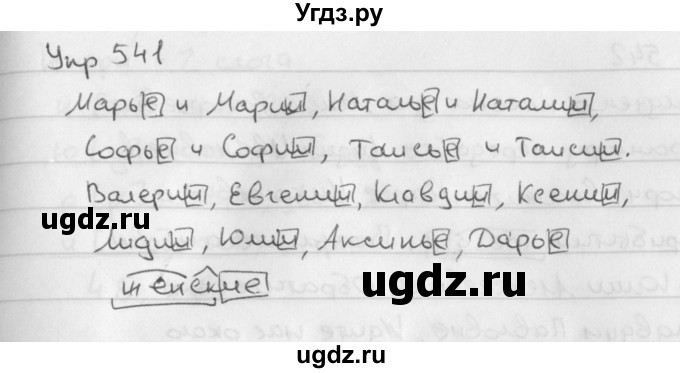 Угдз.ру
Упр 541
Марье и Марии, Наталье и Наталии,
Софье и Софии, Таисье и Таисии.
Валерии, Евгении, Клавдии, Ксении,
Лидии, Юлии, Аксинье, Дарье
женские
ugdz.ru
ugdz.ru
ugdz.ru